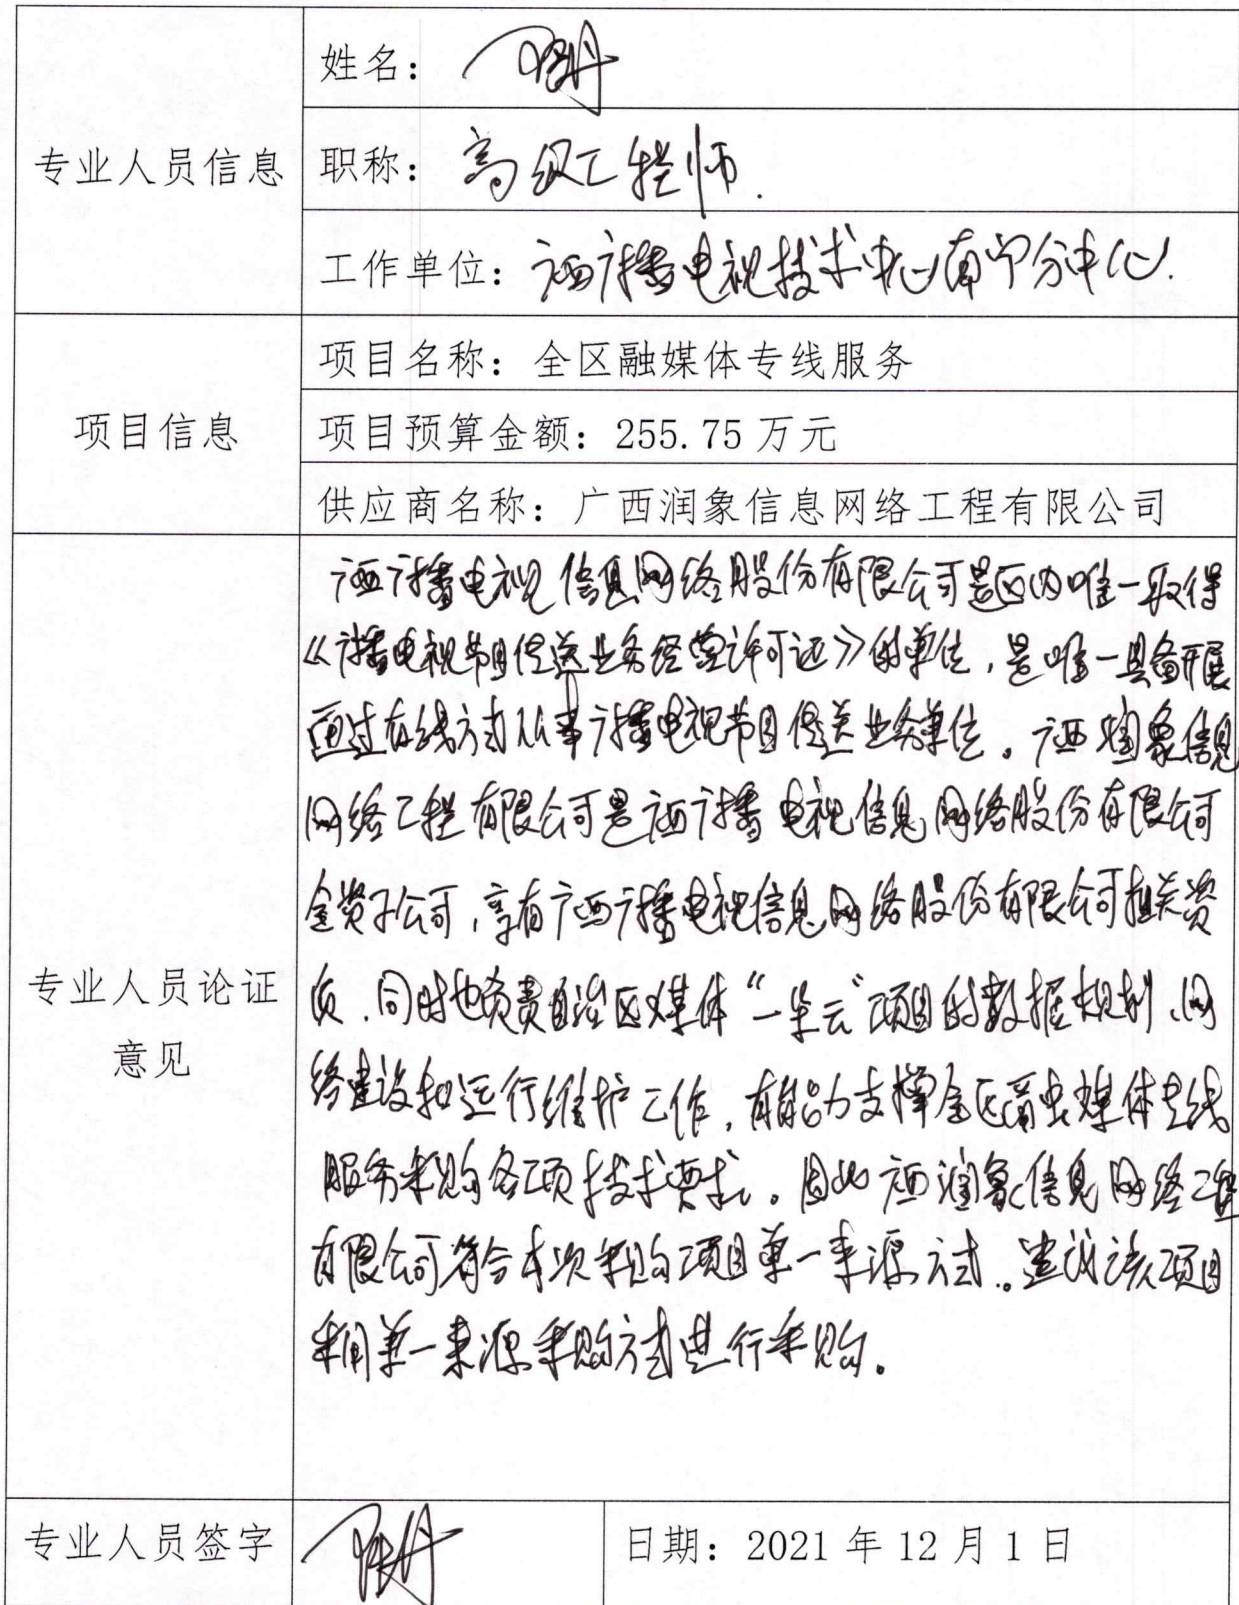 姓名：
专业人员信息
职称：高级工程师.
工作单位：广西广播电视技术中心南宁分中心.
项目名称：全区融媒体专线服务
项目信息
项目预算金额：255.75 万元
供应商名称：广西润象信息网络工程有限公司
广西广播电视信息网络股份有限公司是区内唯一取得
《广播电视节目传送业务经营许可证》的单位，是唯一具备开展
通过有线方式从事广播电视节目传送业务单位。广西润象信息
网络工程有限公司是广西广播电视信息网络股份有限公司
全资子公司，享有广西广播电视信息网络股份有限公司相关资
质.同时也负责自治区媒体“一朵云”项目的数据规划、网
络建设和运行维护工作，有能力支撑全区融媒体专线
服务采购各项技术要求。因此广西润象信息网络工程
有限公司符合本次采购项目单一来源方式。建议该项目
采用单一来源采购方式进行采购。
专业人员论证
意见
专业人员签字
日期：2021 年 12 月 1 日